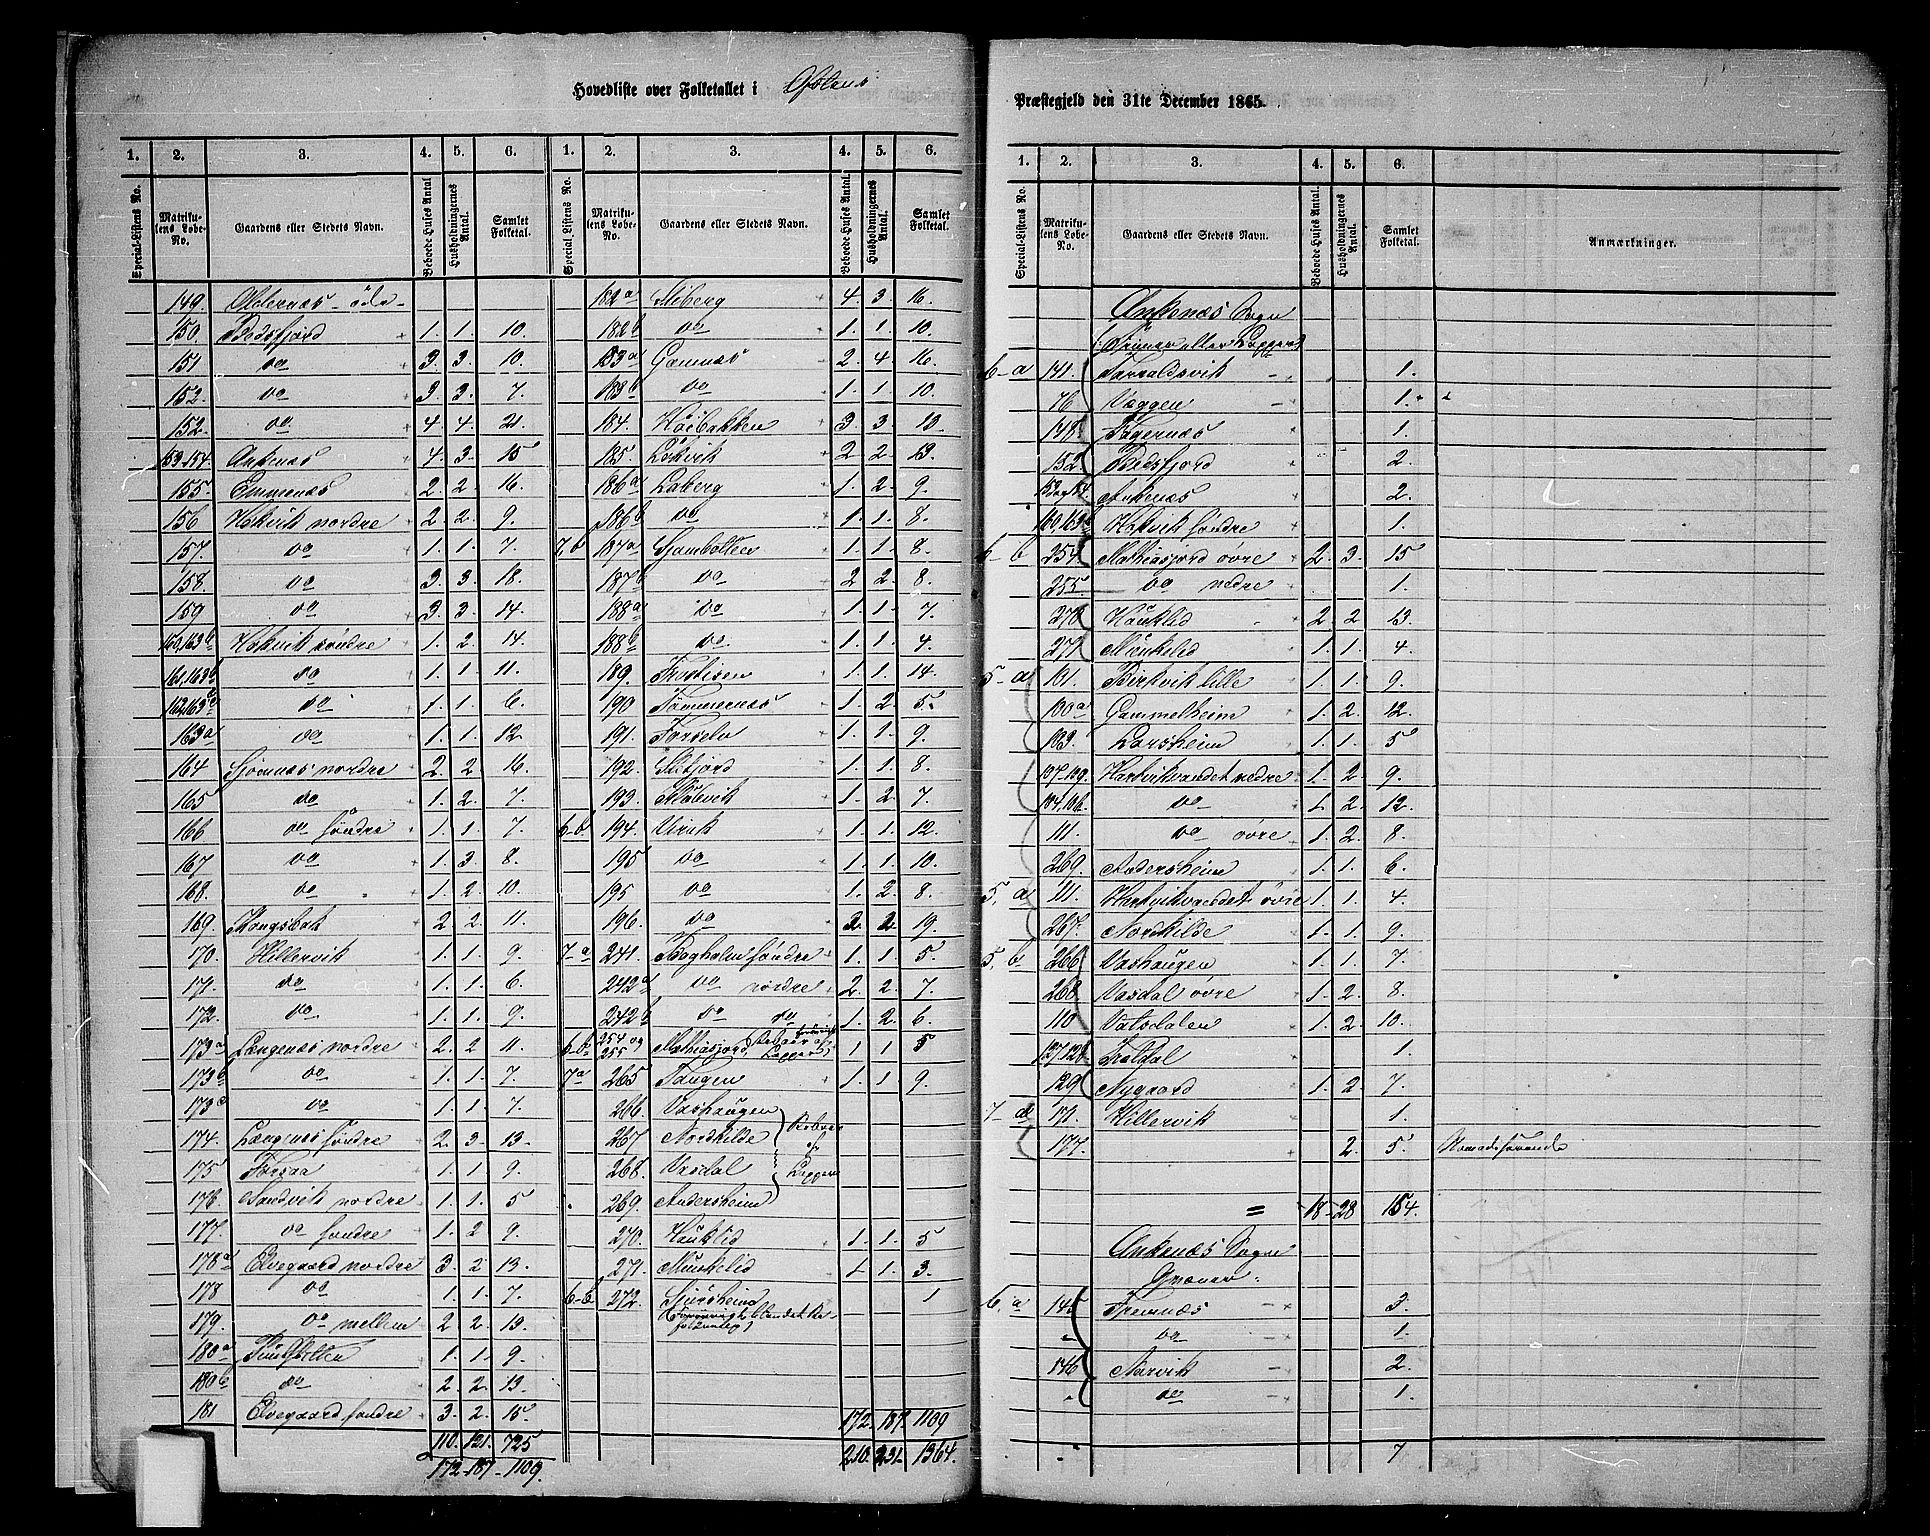 Hovedliste over Folketallet i Ofotens
1. 2. 3. 4. 5. 6. 1. 2. 3. 4. 5. 6.
Special-Listens No. Matrikulens Løbe-No. Gaardens eller Stedets Navn. Beboede Huses Antal Husholdningernes Antal. Samlet Folketal. Special-Listens No. Matrikulens Løbe-No. Gaardens eller Stedets Navn. Beboede Huses Antal. Husholdningernes Antal. Samlet Folketal.
149. Oldernæs - öde -
150. Bedsfjord 1. 1. 10.
151 do 3. 3. 10.
152. do 3. 3. 7.
152. do 4. 4. 21.
153.154. Ankenæs 4. 3. 15
155. Emmenæs 2. 2. 16.
156 Hokvik nordre 2. 2. 9.
157. do 1. 1. 7.
158. do 3. 3. 18.
159 do 3. 3. 14.
160,163b Hokvik söndre 1. 2. 14.
161,163 do 1. 1. 11.
162,163 do 1. 1. 6.
163a do 1. 1. 12
164 Sjomnæs nordre 2. 2 16.
165 do 1. 2. 7.
166 do söndre 1. 1. 7.
167 do 1. 3. 8.
168. do 1. 2. 10.
169. Kongsbak 2 2. 11.
170. Hillervik 1. 1. 9.
171. do 1. 1. 6.
172. do 1. 1. 9.
173a Længenæs nordre 2. 2 11.
173b do 1. 1. 7.
173c do 1. 1. 7.
174. Længenæs söndre 2. 3. 13.
175 Forsaa 1. 1. 9.
176 Sandvik nordre 1. 1. 5
177. do söndre 1. 2 9.
178a Elvegaard nordre 3. 2. 13.
178 do 1. 1. 7.
179. do mellem 2 2. 13.
180a 1. 1. 9.
180b do 2. 2. 13.
181 Elvegaard söndre 3. 2. 15.
110. 121. 725
172 - 187 - 1109.
182a Skiberg 4. 3. 16.
182b do 1. 1. 10.
183a Gamnæs 2. 4 16.
183b do 1. 1. 10.
184. Höibakken 3. 3. 10.
185. Lökvik 2 2. 13.
186a Laberg 1. 2. 9.
186b do 1. 1. 8.
7,b 187a Sjombotten 1. 1. 8.
187b do 2 2. 8.
188a do 1. 1. 7.
188b do 1. 1. 4.
189. Frostisen 1. 1. 14.
190 Tömmernæs 1. 2 5.
191. Forselv 1. 1. 9.
192. Skifjord 1. 1. 8.
193. 1. 2. 7.
6-b 194. Virak 1. 1. 12.
195 do 1. 1. 10.
195 do 1. 2. 8.
196. do 2. 2. 19.
7-a 241. Skogholm söndre 1. 1. 5
242a do nordre 2. 2. 7.
242b do do 1. 2. 6.
6-b 254 og 255 Mathiasjord 1 1. 5
7a 265 Tangen 1. 1. 9.
266. Vashaugen
267. Nordkilde
268. Vasdal
Beboes af Lapper
269. Andersheim
270. Haüklid 1. 1. 5
271. Munkelid 1 1. 3.
6-b 272. 1
172. 187. 1109
210. 231. 1364.
Præstegjeld den 31te December 1865.
1. 2. 3. 4. 5. 6.
Special-Listens No. Matrikulens Løbe-No. Gaardens eller Stedets Navn. Beboede Huses Antal. Husholdningernes Antal. Samlet Folketal. Anmærkninger.
Ankenæs Sogn
(Finner eller Lapper)
6-a 141. Taraldsvik 1.
76 Væggen 1.
148. Fagernæs 1.
152. Bedsfjord 2.
153 og 154. Ankenæs 2.
160,163b Hokvik söndre 1.
6-b 254. Mathiasjord övre 2. 3. 15
255. do nedre 1.
270 Haüklid 2. 2 13.
271 Munkelid 1. 1. 4
5-a 101. Birkvik lille 1. 1. 9.
100a Gammelheim 1. 2. 12.
103. Larsheim 1. 1. 5
107.109. Hartvikvandet nedre 1. 2. 9.
104.106. do 1. 2. 12.
111. do övre 1. 2. 8.
269. Andersheim 1. 1. 6.
5. a 111. Hartvikvandet övre 1. 1. 4.
267. Nordkilde 1. 1. 9.
5. b 266 Vashaugen 1. 1. 7.
268. Vasdal övre 1. 2 8.
110 Vatsdalen 1. 2 10.
127,128 1.
129 Nygaard 1. 2. 7.
7-a 171. Hillervik 1.
177. 2. 5. Nomadiserende
= 18 - 28 154.
Ankenæs Sogn
Qvæner.
6. a 145 Fremnæs 3.
" do 1.
146 Narvik 2.
" do 1.
7